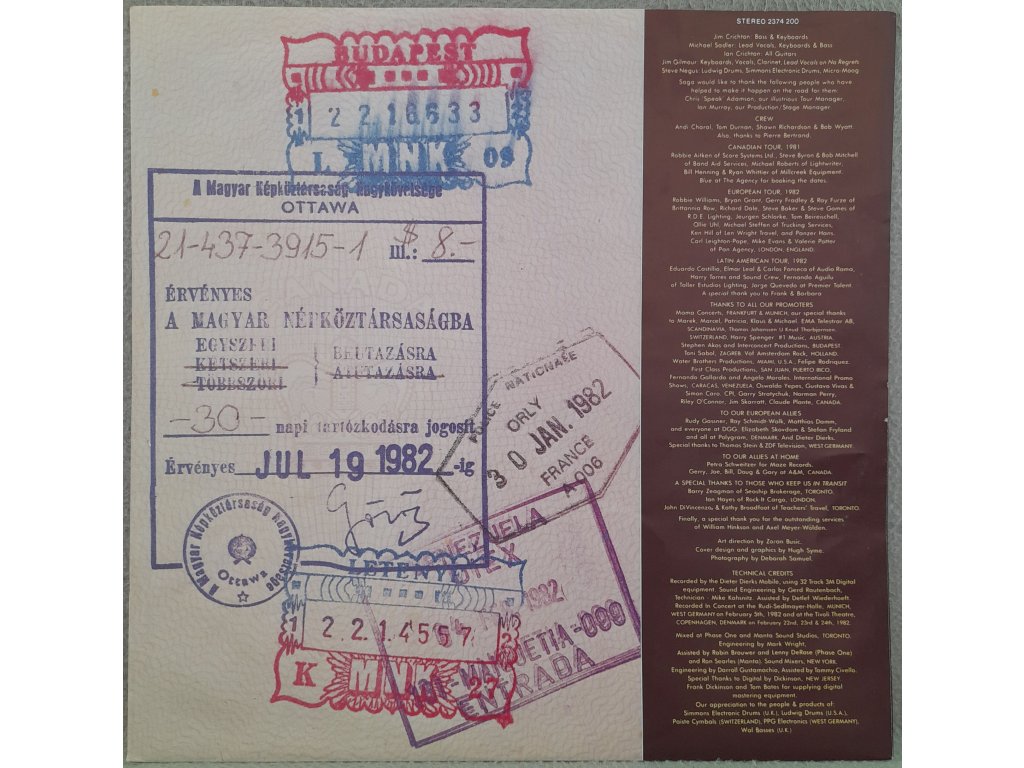 BUDAPEST
2 2 1 6 6 3 3
L MNK 09
A Magyar Népköztársaság Nagykövetsége
OTTAWA
21-437-3915-1 Ill.: $ 8.-
ÉRVÉNYES
A MAGYAR NÉPKÖZTÁRSASÁGBA
EGYSZERI
KÉTSZERI BEUTAZÁSRA
TÖBBSZÖRI ÁTUTAZÁSRA
-30- napi tartózkodásra jogosít
Érvényes JUL 19 1982 -ig
A Magyar Népköztársaság Nagykövetsége
Ottawa
POLICE NATIONALE
ORLY
30 JAN. 1982
FRANCE
A 006
VENEZUELA
DIEX
1982
MAIQUETIA-009
ENTRADA
LETENYE
2 2 1 4 5 5 7
K MNK 27
STEREO 2374 200
Jim Crichton: Bass & Keyboards
Michael Sadler: Lead Vocals, Keyboards & Bass
Ian Crichton: All Guitars
Jim Gilmour: Keyboards, Vocals, Clarinet, Lead Vocals on No Regrets
Steve Negus: Ludwig Drums, Simmons Electronic Drums, Micro-Moog
Saga would like to thank the following people who have
helped to make it happen on the road for them:
Chris 'Speak' Adamson, our illustrious Tour Manager,
Ian Murray, our Production/Stage Manager
CREW
Andi Charal, Tom Durnan, Shawn Richardson & Bob Wyatt
Also, thanks to Pierre Bertrand.
CANADIAN TOUR, 1981
Robbie Aitken of Score Systems Ltd., Steve Byron & Bob Mitchell
of Band Aid Services, Michael Roberts of Lightwriter,
Bill Henning & Ryan Whittier of Millcreek Equipment.
Blue at The Agency for booking the dates.
EUROPEAN TOUR, 1982
Robbie Williams, Bryan Grant, Gerry Fradley & Ray Furze of
Brittannia Row, Richard Dale, Steve Baker & Steve Games of
R.D.E. Lighting, Jeurgen Schlorke, Tom Beireischell,
Ollie Uhl, Michael Steffen of Trucking Services,
Ken Hill of Len Wright Travel, and Panzer Hans.
Carl Leighton-Pope, Mike Evans & Valerie Potter
of Pan Agency, LONDON, ENGLAND.
LATIN AMERICAN TOUR, 1982
Eduardo Castillia, Elmar Leal & Carlos Fonseca of Audio Rama,
Harry Torres and Sound Crew, Fernando Aguilu
of Taller Estudias Lighting, Jorge Quevedo at Premier Talent.
A special thank you to Frank & Barbara
THANKS TO ALL OUR PROMOTERS
Mama Concerts, FRANKFURT & MUNICH, our special thanks
to Marek, Marcel, Patricia, Klaus & Michael. EMA Telestrar AB,
SCANDINAVIA, Thomas Johansen U Knud Thorbjørnsen.
SWITZERLAND, Harry Spenger #1 Music, AUSTRIA.
Stephen Akos and Interconcert Productions, BUDAPEST.
Toni Sabol, ZAGREB. Vol Amsterdam Rock, HOLLAND.
Water Brothers Productions, MIAMI, U.S.A., Felipe Rodriquez.
First Class Productions, SAN JUAN, PUERTO RICO.
Fernando Gallardo and Angelo Morales, International Promo
Shows, CARACAS, VENEZUELA. Oswaldo Yepes, Gustavo Vivas &
Simon Caro. CPI, Garry Stratychuk, Norman Perry,
Riley O'Connor, Jim Skarratt, Claude Plante, CANADA.
TO OUR EUROPEAN ALLIES
Rudy Gassner, Ray Schmidt Walk, Matthias Damm,
and everyone at DGG. Elizabeth Skovdam & Stefan Fryland
and all at Polygram, DENMARK. And Dieter Dierks.
Special thanks to Thomas Stein & ZDF Television, WEST GERMANY.
TO OUR ALLIES AT HOME
Petra Schweitzer for Maze Records.
Gerry, Joe, Bill, Doug & Gary at A&M, CANADA.
A SPECIAL THANKS TO THOSE WHO KEEP US IN TRANSIT
Barry Zeagman of Seaship Brokerage, TORONTO.
Ian Hayes of Rock-It Cargo, LONDON.
John DiVincenzo, & Kathy Broadfoot of Teachers' Travel, TORONTO.
Finally, a special thank you for the outstanding services
of William Hinkson and Axel Meyer-Wölden.
Art direction by Zoran Busic.
Cover design and graphics by Hugh Syme.
Photography by Deborah Samuel.
TECHNICAL CREDITS
Recorded by the Dieter Dierks Mobile, using 32 Track 3M Digital
equipment. Sound Engineering by Gerd Rautenbach,
Technician - Mike Kahsnitz. Assisted by Detlef Wiederhoeft.
Recorded In Concert at the Rudi-Sedlmayer-Halle, MUNICH,
WEST GERMANY on February 5th, 1982 and at the Tivoli Theatre,
COPENHAGEN, DENMARK on February 22nd, 23rd & 24th, 1982.
Mixed at Phase One and Manta Sound Studios, TORONTO.
Engineering by Mark Wright,
Assisted by Robin Brouwer and Lenny DeRose (Phase One)
and Ron Searles (Manta). Sound Mixers, NEW YORK.
Engineering by Darroll Gustamachio, Assisted by Tommy Civello.
Special Thanks to Digital by Dickinson, NEW JERSEY
Frank Dickinson and Tom Bates for supplying digital
mastering equipment.
Our appreciation to the people & products of:
Simmons Electronic Drums (U.K.), Ludwig Drums (U.S.A.),
Paiste Cymbals (SWITZERLAND), PPG Electronics (WEST GERMANY),
Wal Basses (U.K.)